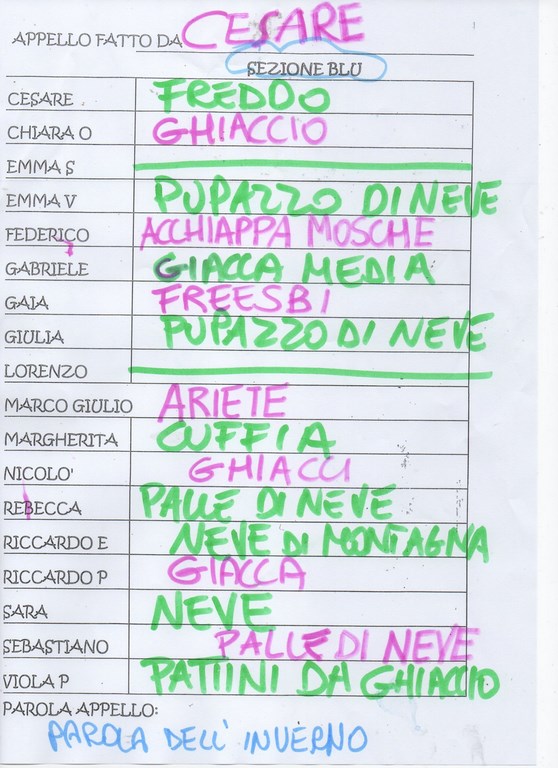 APPELLO FATTO DA CESARE
SEZIONE BLU
CESARE FREDDO
CHIARA O GHIACCIO
EMMA S
EMMA V PUPAZZO DI NEVE
FEDERICO ACCHIAPPA MOSCHE
GABRIELE GIACCA MEDIA
GAIA FREESBI
GIULIA PUPAZZO DI NEVE
LORENZO
MARCO GIULIO ARIETE
MARGHERITA CUFFIA
NICOLO' GHIACCI
REBECCA PALLE DI NEVE
RICCARDO E NEVE DI MONTAGNA
RICCARDO P GIACCA
SARA NEVE
SEBASTIANO PALLE DI NEVE
VIOLA P PATTINI DA GHIACCIO
PAROLA APPELLO:
PAROLA DELL' INVERNO